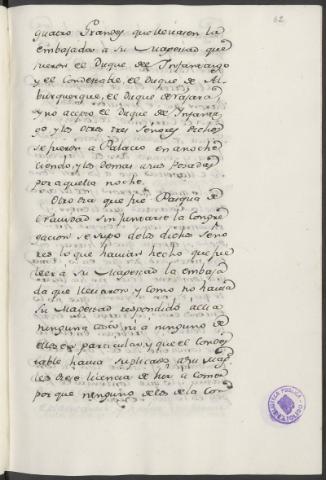 62
quatro Grandes que llevasen la
embajada a su Magestad que
fueron el Duque del Infantazgo
y el Condestable, el Duque de Al-
burquerque, el Duque de Najara
y no acceto el Duque de Infantaz-
go y los otros tres Señores dichos
se fueron a Palacio en anoche
ciendo, y los demas a sus Posadas
por aquella noche.
Otro dia que fue Pasqua de
Navidad sin juntarse la Congre
gacion se supo de los dichos Seño
res lo que havian hecho que fue
leer a su Magestad la embaja
da que llevaron, y como no havia
su Magestad respondido a ella
ninguna cosa, ni a ninguno de
ellos en particular, y que el Condes
table havia suplicado a su Mag.
les diese licencia de hir a comer
por que ninguno de los de la Con
BIBLIOTECA PUBLICA
TOLEDO